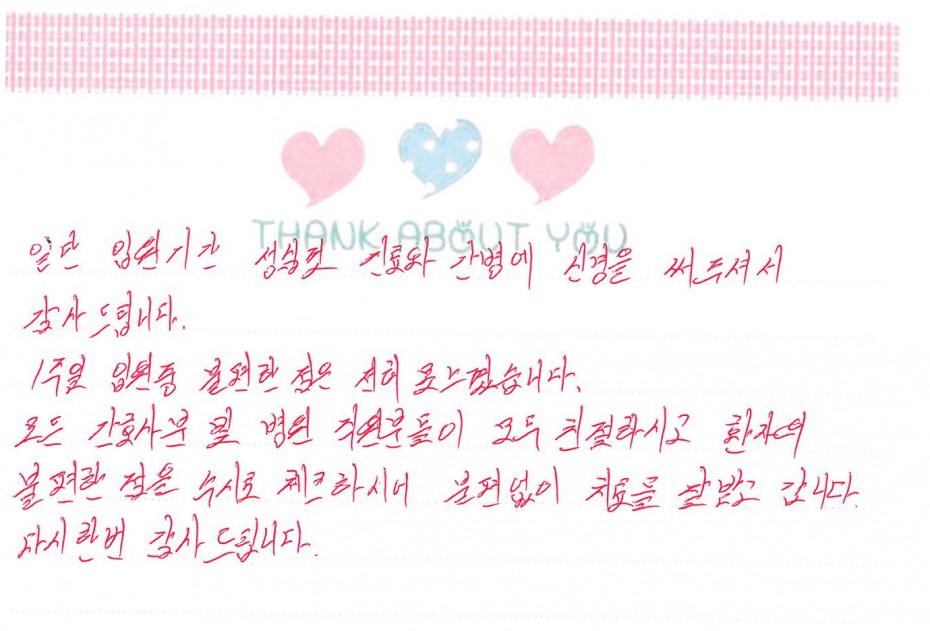 THANK ABOUT YOU
일단 입원기간 성심껏 진료와 간병에 신경을 써주셔서
감사드립니다.
1주일 입원중 불편한 점은 전혀 못느꼈습니다.
모든 간호사분 및 병원 직원분들이 모두 친절하시고 환자의
불편한 점을 수시로 체크하시어 불편없이 치료를 잘받고 갑니다.
다시한번 감사드립니다.